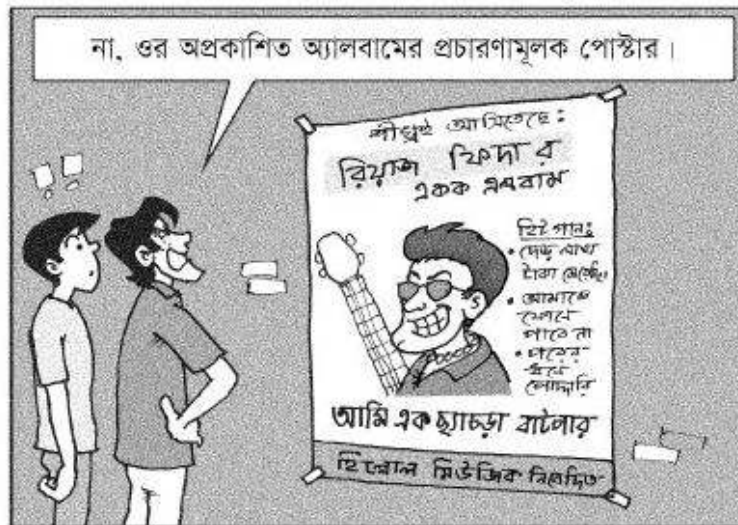 না, ওর অপ্রকাশিত অ্যালবামের প্রচারণামূলক পোস্টার।
শীঘ্রই আসিতেছে:
রিয়াজ ফিদার
একক এলবাম
হিট গান:
• দেড় লাখ
টাকা মেরেছি
• আমাকে
ফোনে
পাবে না
• পরের
ধনে
পোদ্দারি
আমি এক ছ্যাচড়া বাটপার
হিল্লোল মিউজিক নিবেদিত